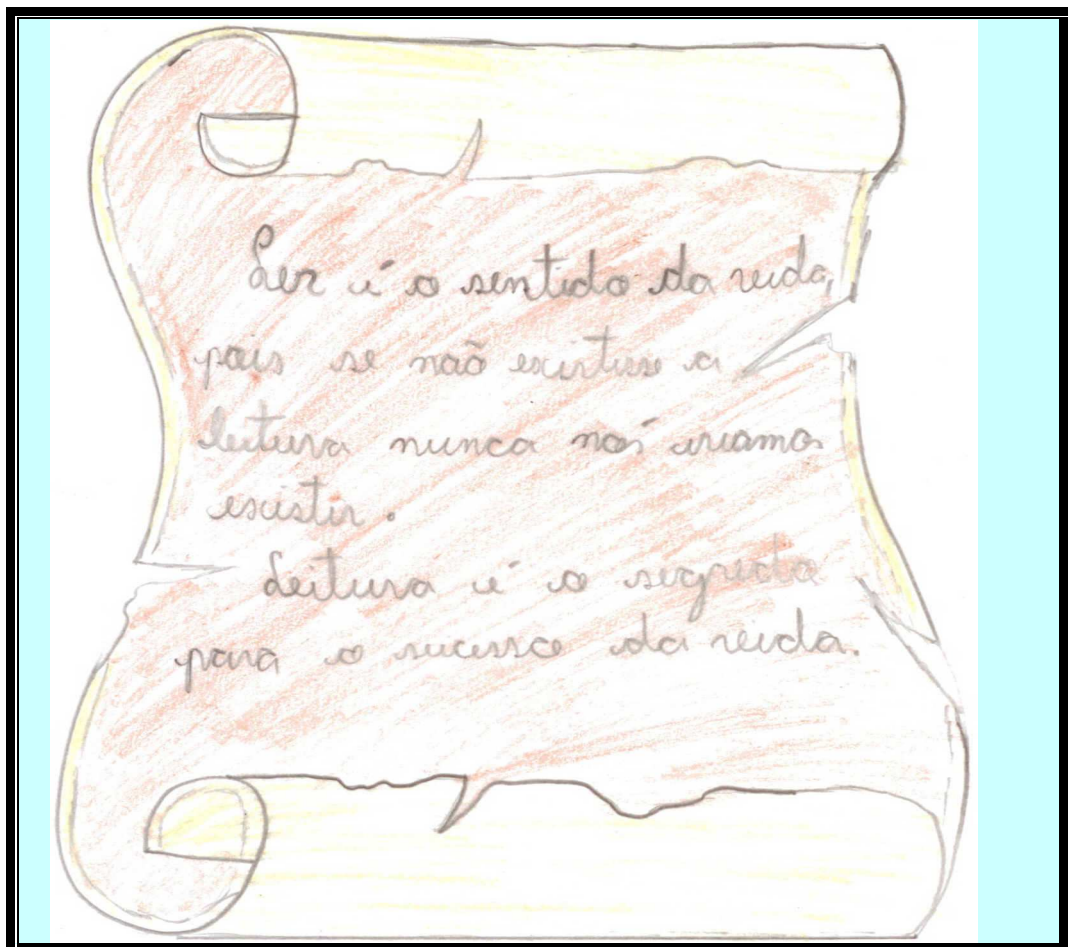 Ler é o sentido da vida,
pois se não existisse a
leitura nunca nós iriamos
existir.
Leitura é o segredo
para o sucesso da vida.